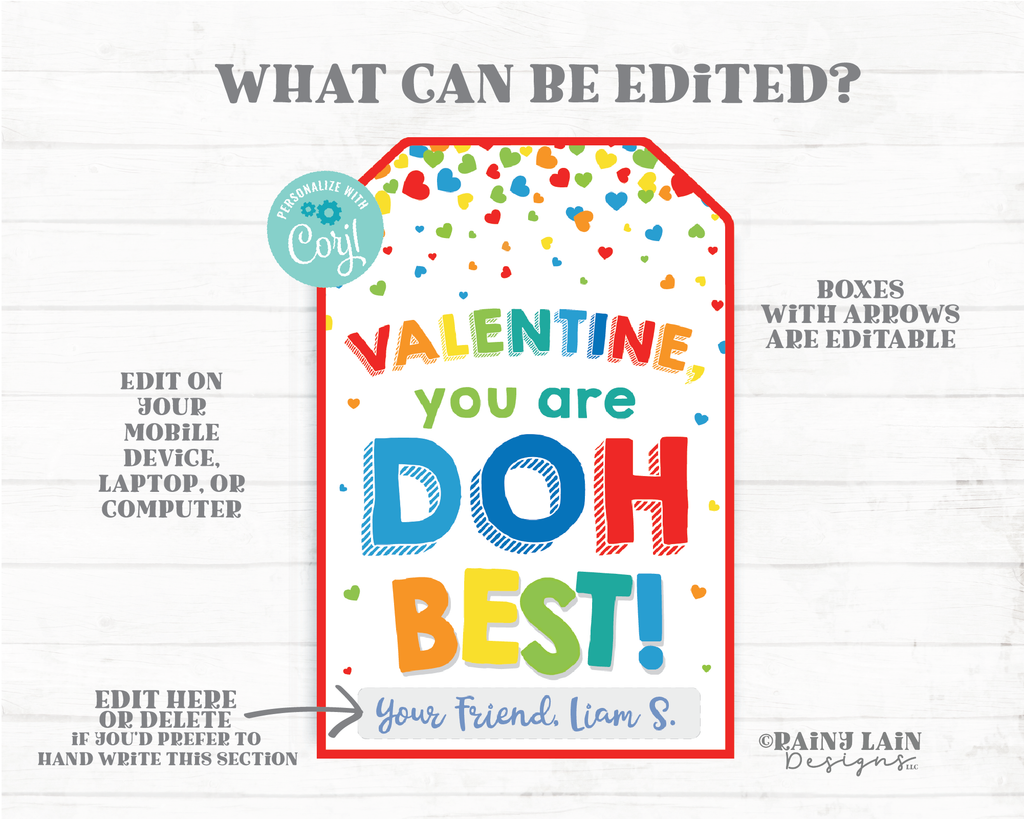 WHAT CAN BE EDiTED?
PERSONALIZE WITH
Corjl
VALENTINE,
you are
DOH
BEST!
Your Friend, Liam S.
BOXES
WiTH ARROWS
ARE EDiTABLE
EDIT ON
YOUR
MOBiLE
DEViCE,
LAPTOP, OR
COMPUTER
EDIT HERE
OR DELETE
iF YOU'D PREFER TO
HAND WRiTE THiS SECTiON
©RAiNY LAiN
Designs LLC